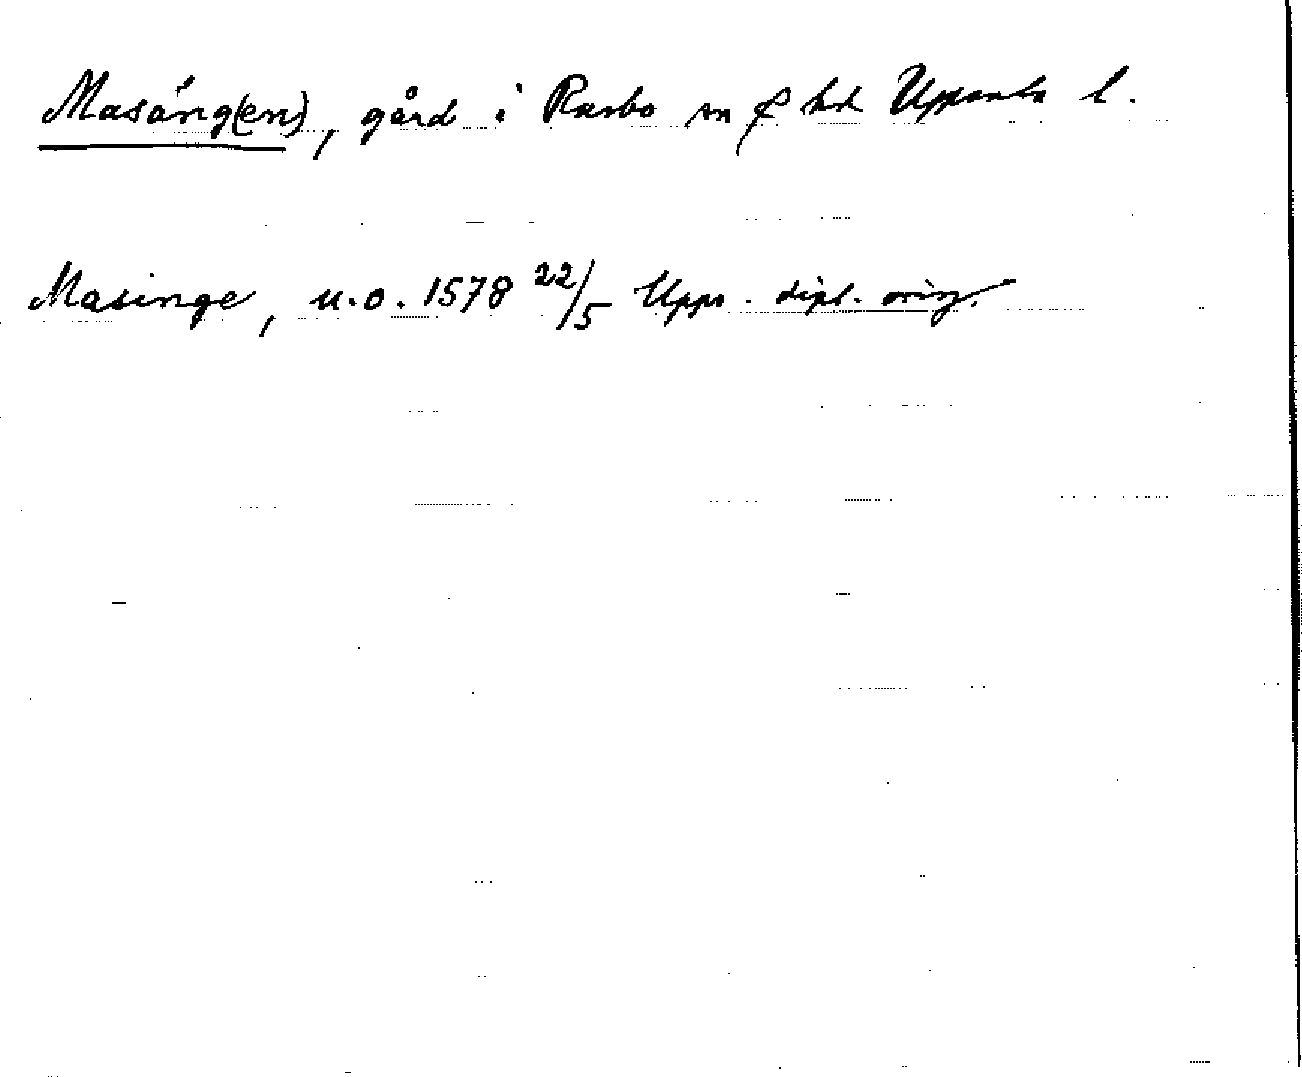 Masäng(en), gård i Rasbo sn o hd Uppsala l.
Masinge, u.o. 1578 22/5 Upps. dipl. orig.